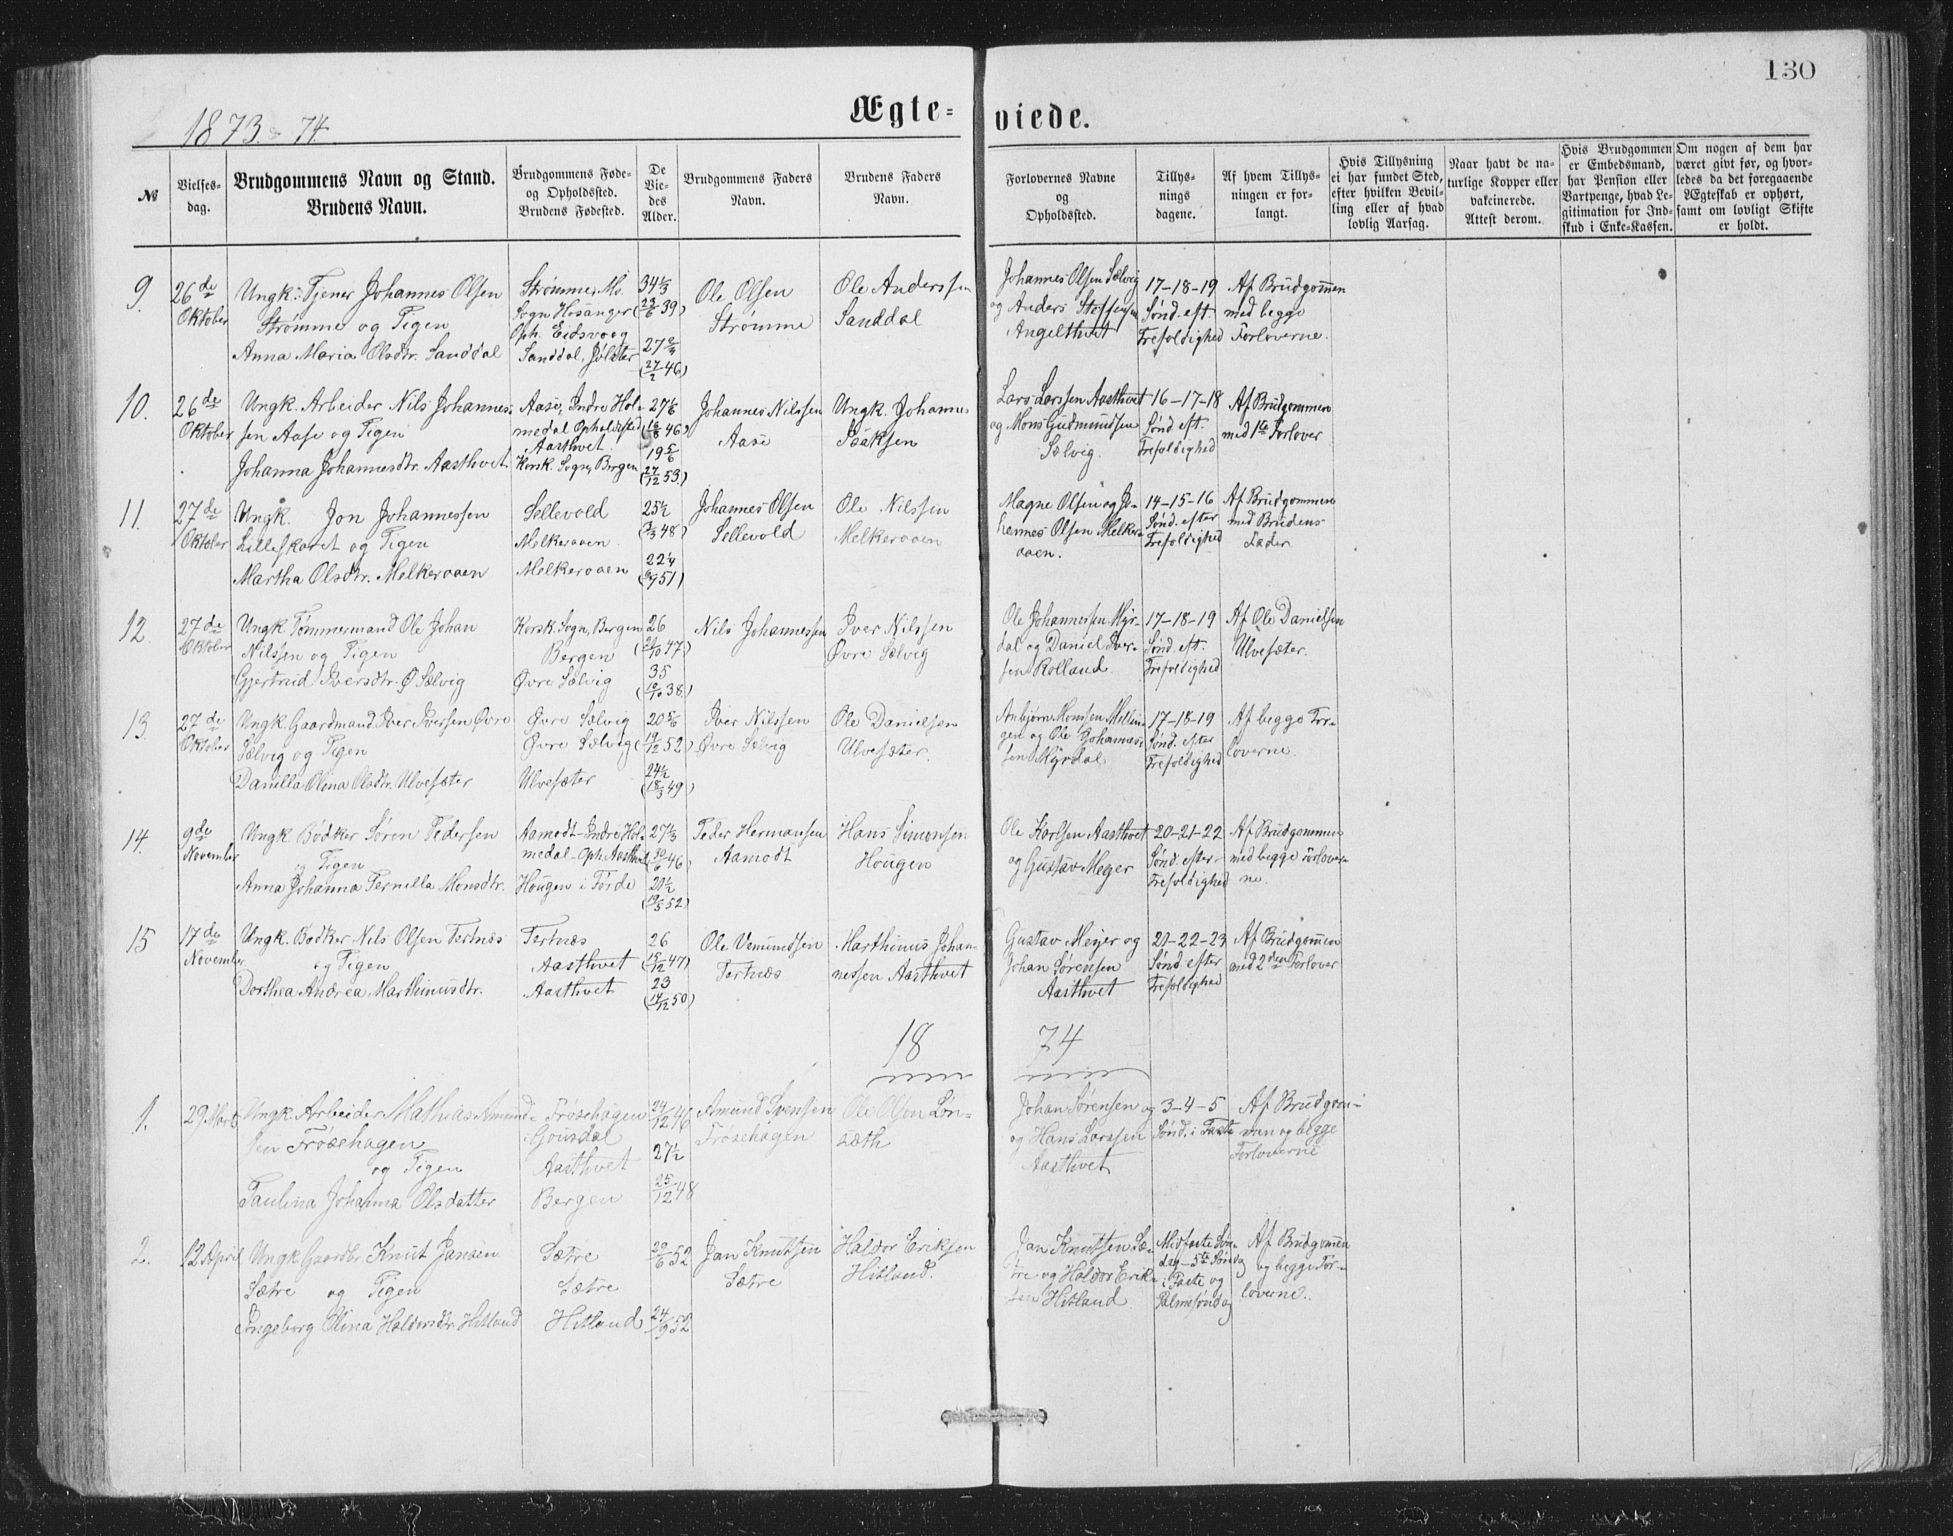 130
1873 & 74.
Ægte-viede.
№
Vielses-dag.
Brudgommens Navn og Stand.
Brudens Navn.
Brudgommens Føde-
og Opholdssted.
Brudens Fødested.
De
Vie-
des
Alder.
Brudgommens Faders
Navn.
Brudens Faders
Navn.
Forlovernes Navne
og
Opholdssted.
Tillys-
nings
dagene.
Af hvem Tillys-
ningen er for-
langt.
Hvis Tillysning
ei har fundet Sted,
efter hvilken Bevil-
ling eller af hvad
lovlig Aarsag.
Naar havt de na-
turlige Kopper eller
vakcinerede.
Attest derom.
Hvis Brudgommen
er Embedsmand,
har Pension eller
Vartpenge, hvad Le-
gitimation for Ind-
skud i Enke-Kassen.
Om nogen af dem har
været givt før, og hvor-
ledes da det foregaaende
Ægteskab er ophørt,
samt om lovligt Skifte
er holdt.
9.
26de
Oktober
Ungk. Tjener Johannes Olsen
Strømme og Pigen
Anna Maria Olsdtr. Sanddal
Strømme, Ms.
Sogn Hosanger
Oph. Eidsvaag
Sanddal, Jølster
34 1/3
(23/6 39)
27 2/3
(27/2 46)
Ole Olsen
Strømme
Ole Anderssen
Sanddal
Johannes Olsen Sælvig
og Anders Steffensen
Angelthvet
17-18-19
Sønd. eft.
Trefoldighed
Af Brudgommen
med begge
Forloverne.
10.
26de
Oktober
Ungk. Arbeider Nils Johannes-
sen Aase og Pigen
Johanna Johannesdtr. Aasthvet
Aase, Indre Hol-
medal Opholdssted
Aasthvet
Korsk. Sogn, Bergen
27 1/6
(16/8 46)
19 5/6
(27/12 53)
Johannes Nilssen
Aase
Ungk. Johannes
Isaksen
Lars Larssen Aasthvet
og Mons Gudmundsen
Sælvig.
16-17-18
Sønd. eft.
Trefoldighed
Af Brudgommen
med 1ste Forlover
11.
27de
Oktober
Ungk. Jon Johannessen
Lilleskaret og Pigen
Martha Olsdtr. Melkeraaen
Sellevold
Melkeraaen
Melkeraaen
25 1/2
(3/3 48)
22 1/4
(6/9 51)
Johannes Olsen
Sellevold
Ole Nilssen
Melkeraaen
Magne Olsen og Jo-
hannes Olsen Melker-
aaen.
14-15-16
Sønd. efter
Trefoldighed
Af Brudgommen
med Brudens
Fader
12.
27de
Oktober
Ungk. Tømmermand Ole Johan
Nilssen og Pigen
Gjertrud Iversdtr. Ø Sælvig
Korsk. Sogn, Bergen
Bergen
Øvre Sælvig
26
(21/10 47)
35
(19/10 38)
Nils Johannessen
Iver Nilssen
Øvre Sælvig
Ole Johannessen Myr-
dal og Daniel Iver-
sen Rolland
17-18-19
Sønd. eft.
Trefoldighed
Af Ole Danielsen
Ulvesæter.
13.
27de
Oktober
Ungk. Gaardmand Iver Iversen Øvre
Sælvig og Pigen
Danilla Olina Olsdtr. Ulvesæter
Øvre Sælvig
Øvre Sælvig
Ulvesæter
20 5/6
(19/12 52)
24 1/2
(18/3 49)
Iver Nilssen
Øvre Sælvig
Ole Danielsen
Ulvesæter.
Anbjørn Monssen Mellin-
gen og Ole Johannes-
sen Myrdal
17-18-19
Sønd. efter
Trefoldighed
Af begge For-
loverne.
14.
9de
November
Ungk. Bødker Søren Pedersen
og Pigen
Anna Johanna Pernilla Monsdtr.
Aamodt-Indre Hol-
medal-Oph. Aasthvet
Hougen i Førde
27 1/3
21 1/2
(19/5 52)
Peder Hermansen
Aamodt
Hans Simonsen
Hougen
Ole Karlsen Aasthvet
og Gustav Meyer
20-21-22
Sønd. efter
Trefoldighed
Af Brudgommen
med begge Forlover-
ne.
15
17de
November
Ungk. Bødker Nils Olsen Tertnæs
og Pigen
Dorthea Andrea Marthinusdtr.
Tertnæs
Aasthvet
Aasthvet
26
(15/12 47)
23
(14/12 50)
Ole Vemundsen
Tertnæs
Marthinus Johan-
nessen Aasthvet
Gustav Meyer og
Johan Sørensen
Aasthvet
21-22-23
Sønd efter
Trefoldighed
Af Brudgommen
med 2den Forlover
18 74
1.
29 Marts
Ungk. Arbeider Mathias Amund-
sen Frøsehagen
og Pigen
Paulina Johanna Olsdatter
Frøsehagen
Gousdal
Aasthvet
Bergen
24/12 46
27 1/2
25/12 48
Amund Svensen
Frøsehagen
Ole Olsen Løn-
sæth
Johan Sørensen og
og Hans Larssen
Aasthvet
3-4-5
Sønd. i Faste
Af Brudgom-
men og begge
Forloverne
2.
12 April
Ungk. Gaardbr. Knut Jansen
Sætre og Pigen
Ingeborg Olina Haldorsdtr. Hitland
Sætre
Sætre
Hitland
29/6 52
24/9 52
Jan Knutsen
Sætre
Haldor Eriksen
Hitland.
Jan Knutsen Sæ-
tre og Haldor Erik-
sen Hitland
Midfaste Søn-
dag-5te Søndag
i Faste og
Palmesøndag
Af Brudgommen
og begge For-
loverne.